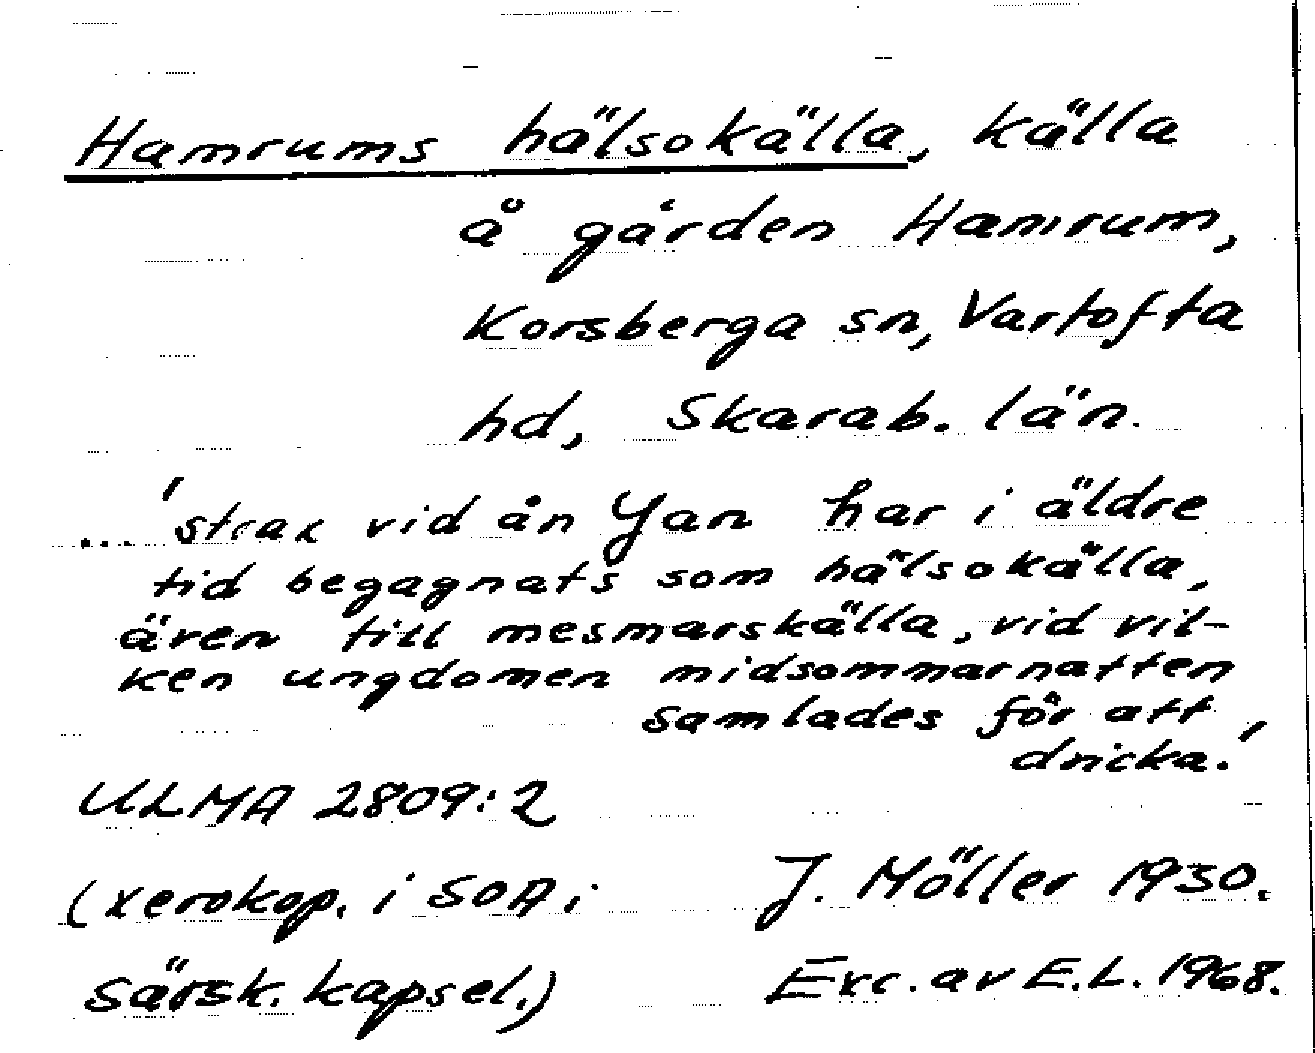 Hamrums hälsokälla, källa
å gården Hamrum,
Korsberga sn, Vartofta
hd, Skarab. län.
... 'strax vid ån Yan har i äldre
tid begagnats som hälsokälla,
även till mesmarskälla, vid vil-
ken ungdomen midsommarnatten
samlades för att
dricka.'
ULMA 2809:2
(xerokop. i SOA i J. Möller 1930.
särsk. kapsel.) Exc. av E.L. 1968.